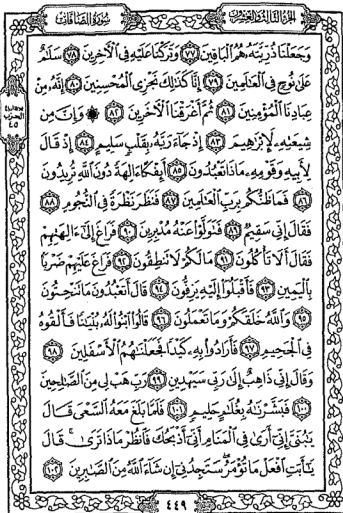 الجزء الثالث والعشرون
سورة الصافات
وَجَعَلْنَا ذُرِّيَّتَهُ هُمُ الْبَاقِينَ ٧٧ وَتَرَكْنَا عَلَيْهِ فِي الْآخِرِينَ ٧٨ سَلَامٌ
عَلَىٰ نُوحٍ فِي الْعَالَمِينَ ٧٩ إِنَّا كَذَٰلِكَ نَجْزِي الْمُحْسِنِينَ ٨٠ إِنَّهُ مِنْ
عِبَادِنَا الْمُؤْمِنِينَ ٨١ ثُمَّ أَغْرَقْنَا الْآخَرِينَ ٨٢ ۞ وَإِنَّ مِن
شِيعَتِهِ لَإِبْرَاهِيمَ ٨٣ إِذْ جَاءَ رَبَّهُ بِقَلْبٍ سَلِيمٍ ٨٤ إِذْ قَالَ
لِأَبِيهِ وَقَوْمِهِ مَاذَا تَعْبُدُونَ ٨٥ أَئِفْكًا آلِهَةً دُونَ اللَّهِ تُرِيدُونَ
٨٦ فَمَا ظَنُّكُم بِرَبِّ الْعَالَمِينَ ٨٧ فَنَظَرَ نَظْرَةً فِي النُّجُومِ ٨٨
فَقَالَ إِنِّي سَقِيمٌ ٨٩ فَتَوَلَّوْا عَنْهُ مُدْبِرِينَ ٩٠ فَرَاغَ إِلَىٰ آلِهَتِهِمْ
فَقَالَ أَلَا تَأْكُلُونَ ٩١ مَا لَكُمْ لَا تَنطِقُونَ ٩٢ فَرَاغَ عَلَيْهِمْ ضَرْبًا
بِالْيَمِينِ ٩٣ فَأَقْبَلُوا إِلَيْهِ يَزِفُّونَ ٩٤ قَالَ أَتَعْبُدُونَ مَا تَنْحِتُونَ
٩٥ وَاللَّهُ خَلَقَكُمْ وَمَا تَعْمَلُونَ ٩٦ قَالُوا ابْنُوا لَهُ بُنْيَانًا فَأَلْقُوهُ
فِي الْجَحِيمِ ٩٧ فَأَرَادُوا بِهِ كَيْدًا فَجَعَلْنَاهُمُ الْأَسْفَلِينَ ٩٨
وَقَالَ إِنِّي ذَاهِبٌ إِلَىٰ رَبِّي سَيَهْدِينِ ٩٩ رَبِّ هَبْ لِي مِنَ الصَّالِحِينَ
١٠٠ فَبَشَّرْنَاهُ بِغُلَامٍ حَلِيمٍ ١٠١ فَلَمَّا بَلَغَ مَعَهُ السَّعْيَ قَالَ
يَا بُنَيَّ إِنِّي أَرَىٰ فِي الْمَنَامِ أَنِّي أَذْبَحُكَ فَانظُرْ مَاذَا تَرَىٰ ۚ قَالَ
يَا أَبَتِ افْعَلْ مَا تُؤْمَرُ ۖ سَتَجِدُنِي إِن شَاءَ اللَّهُ مِنَ الصَّابِرِينَ ١٠٢
الحزب
٤٥
٤٤٩